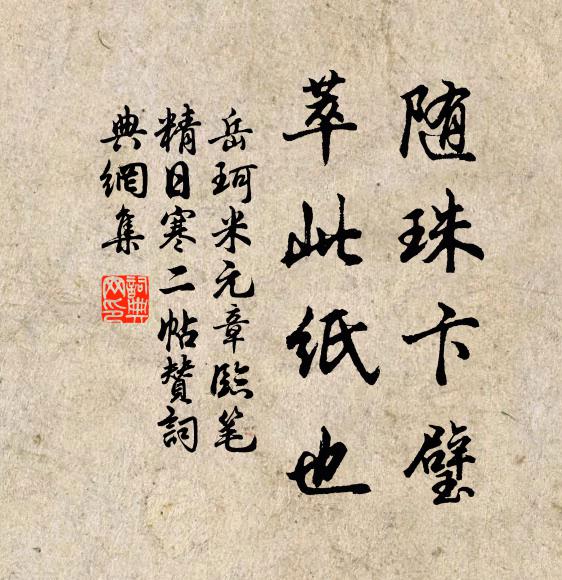 随珠卞璧
萃此紙也
岳珂米元章臨笔
精日寒二帖賛詞
典網集
詞典網印